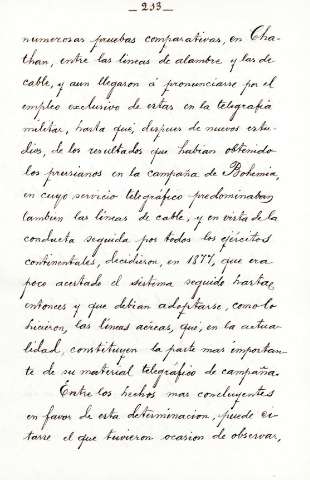 — 233 —
numerosas pruebas comparativas, en Cha-
than, entre las lineas de alambre y las de
cable, y aun llegaron á pronunciarse por el
empleo exclusivo de estas en la telegrafia
militar, hasta que, despues de nuevos estu-
dios, de los resultados que habian obtenido
los prusianos en la campaña de Bohemia,
en cuyo servicio telegráfico predominaban
tambien las líneas de cable, y en vista de la
conducta seguida por todos los ejércitos
continentales, decidieron, en 1877, que era
poco acertado el sistema seguido hasta
entonces y que debian adoptarse, como lo
hicieron, las líneas aéreas, que, en la actua-
lidad, constituyen la parte mas importan-
te de su material telegráfico de campaña.
Entre los hechos mas concluyentes
en favor de esta determinacion, puede ci-
tarse el que tuvieron ocasion de observar,